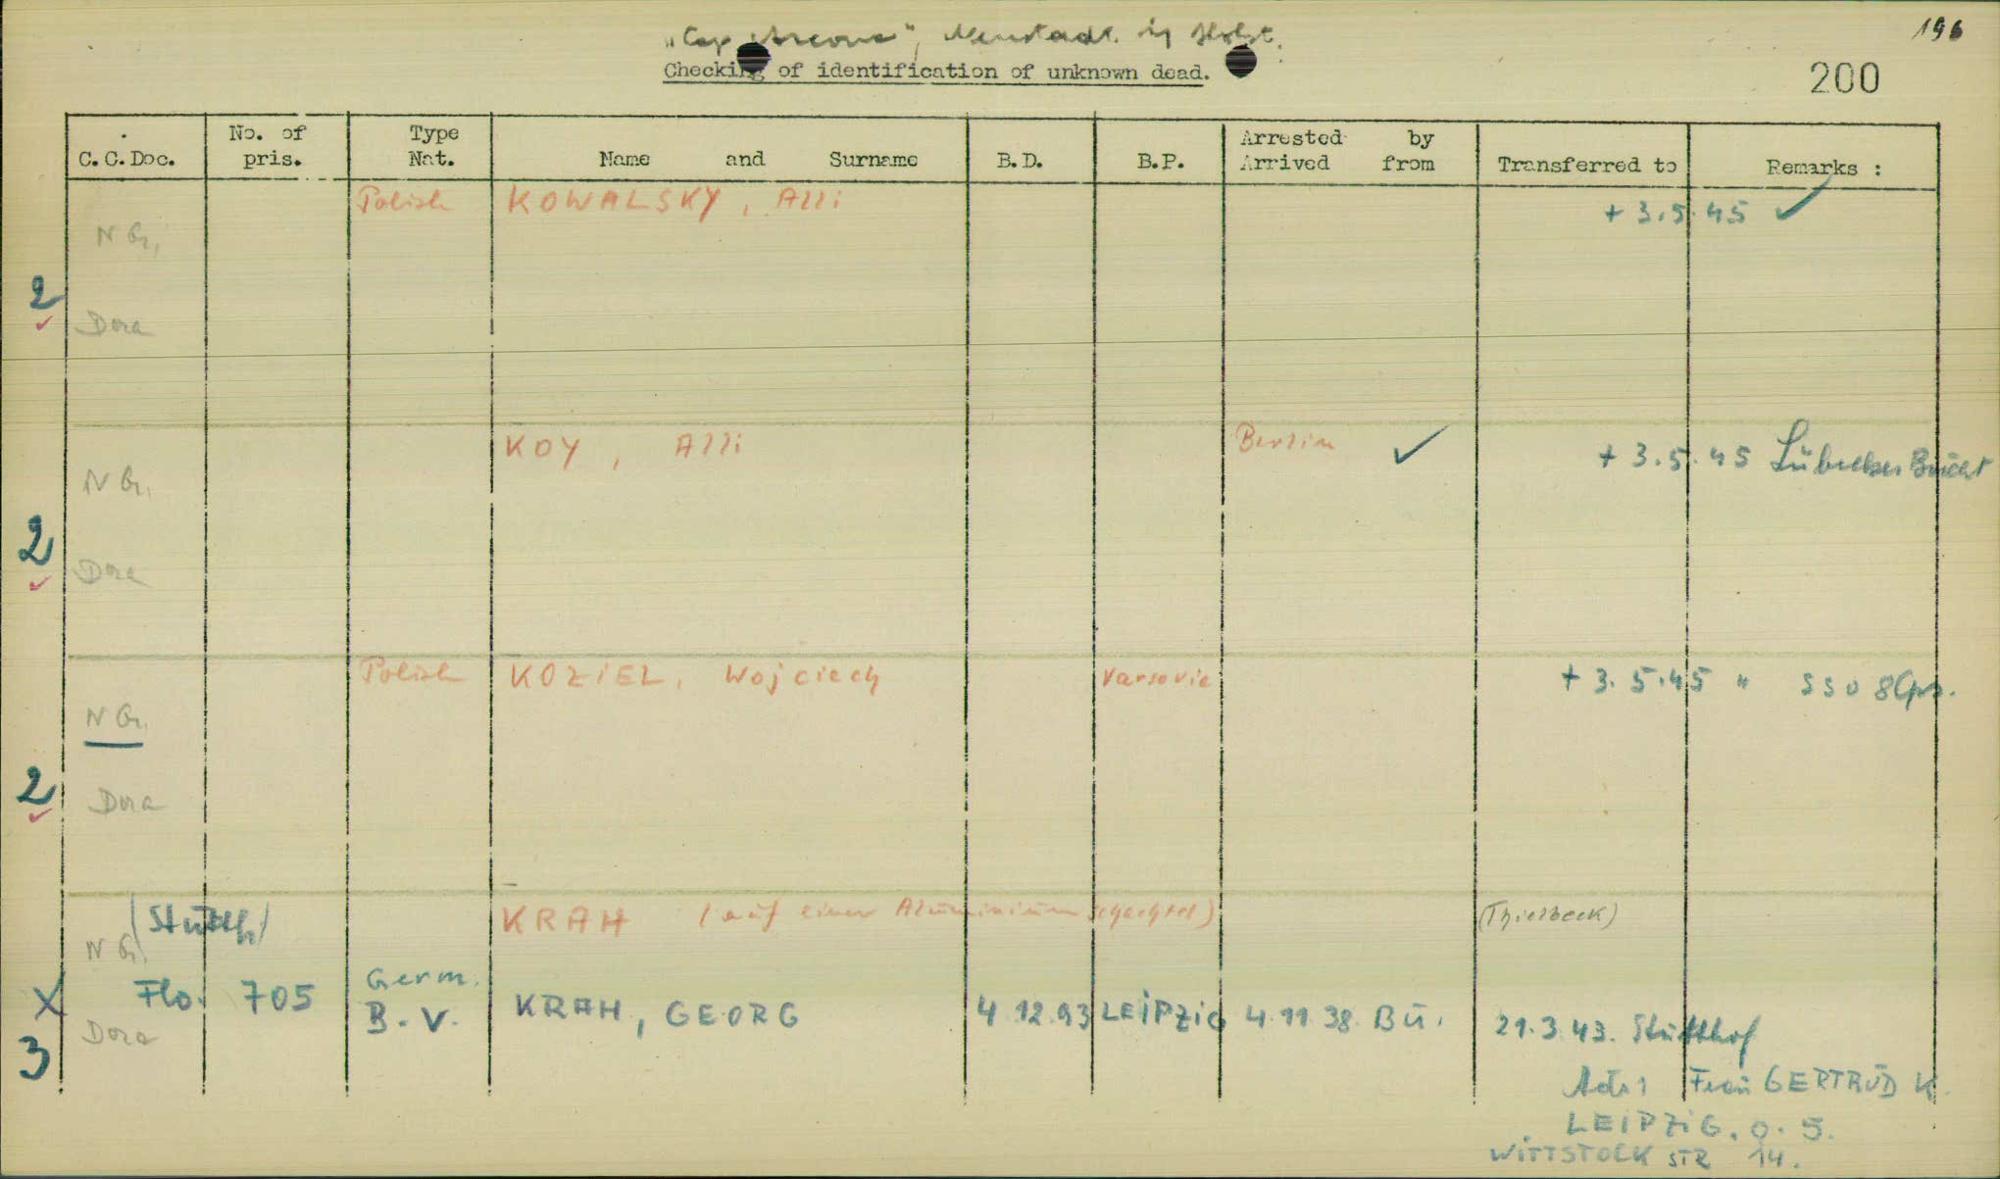 "Cap Arcona", Neustadt in Holst.
196
Checking of identification of unknown dead.
200
C.C.Doc. No. of pris. Type Nat. Name and Surname B.D. B.P. Arrested by Arrived from Transferred to Remarks :
Polish KOWALSKY, Alli + 3.5.45 ✓
N Gr.
2
✓ Dora
KOY, Alli Berlin ✓ + 3.5.45 Lübecker Bucht
N Gr.
2
✓ Dora
Polish KOZIEL, Wojciech Varsovie + 3.5.45 "
N Gr.
2
✓ Dora
(Stutth) KRAH (auf einer Aluminiumschachtel) (Thielbeck)
N Gr.
X Flo. 705 Germ. B.V. KRAH, GEORG 4.12.93 LEiPZiG 4.11.38 Bu. 21.3.43. Stutthof
3 Dora
Adr: Frau GERTRUD K.
LEiPZiG. O. 5.
WiTTSTOCK STR 14.